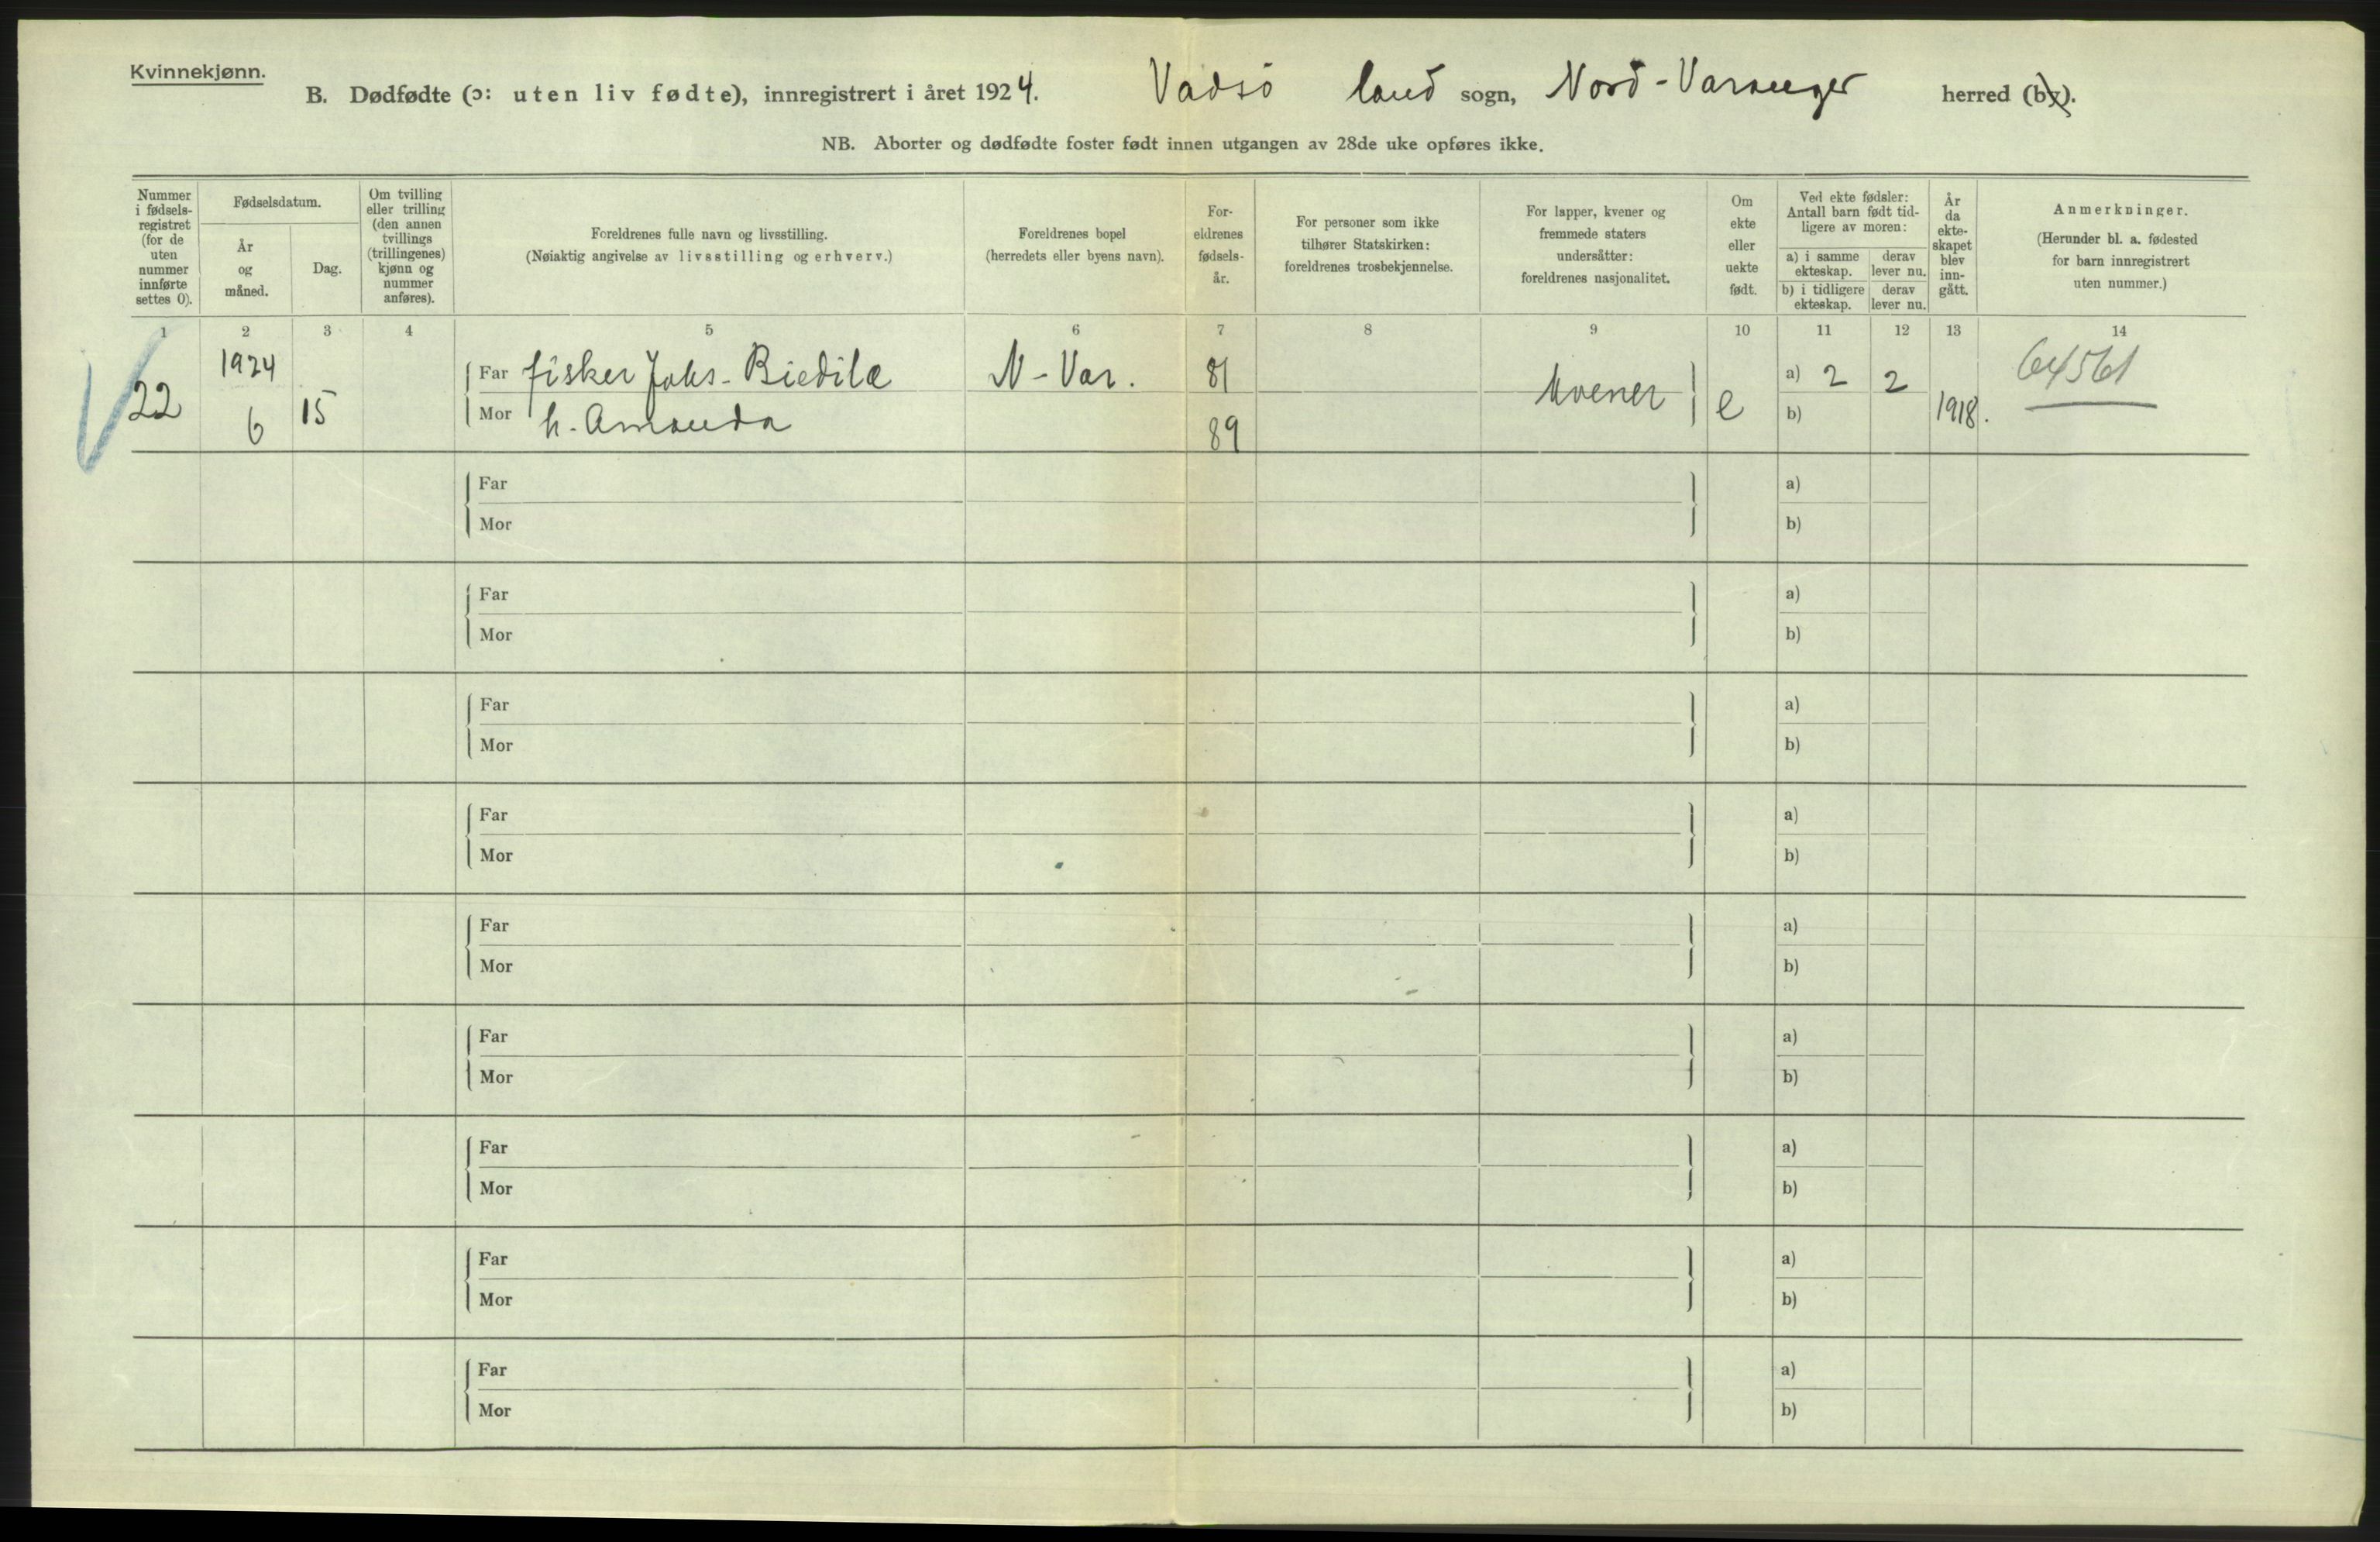 Kvinnekjønn.
B. Dødfødte (ɔ: uten liv fødte), innregistrert i året 1924. Vadsö land sogn, Nord-Varanger herred (by).
NB. Aborter og dødfødte foster født innen utgangen av 28de uke opføres ikke.
Nummer i fødsels-registret (for de uten nummer innførte settes 0).
Fødselsdatum.
År og måned.
Dag.
Om tvilling eller trilling (den annen tvillings (trillingenes) kjønn og nummer anføres).
Foreldrenes fulle navn og livsstilling.
(Nøiaktig angivelse av livsstilling og erhverv.)
Foreldrenes bopel
(herredets eller byens navn).
For-eldrenes fødsels-år.
For personer som ikke tilhører Statskirken: foreldrenes trosbekjennelse.
For lapper, kvener og fremmede staters undersåtter: foreldrenes nasjonalitet.
Om ekte eller uekte født.
Ved ekte fødsler: Antall barn født tid-ligere av moren:
a) i samme ekteskap.
derav lever nu.
b) i tidligere ekteskap.
derav lever nu.
År da ekte-skapet blev inn-gått.
Anmerkninger.
(Herunder bl. a. fødested for barn innregistrert uten nummer.)
1 2 3 4 5 6 7 8 9 10 11 12 13 14
22 1924 6 15
Far fisker Johs. Biedilæ N-Var. 81 Kvener e a) 2 2 1918. 64561
Mor h. Amanda 89 b)
Far a)
Mor b)
Far a)
Mor b)
Far a)
Mor b)
Far a)
Mor b)
Far a)
Mor b)
Far a)
Mor b)
Far a)
Mor b)
Far a)
Mor b)
Far a)
Mor b)